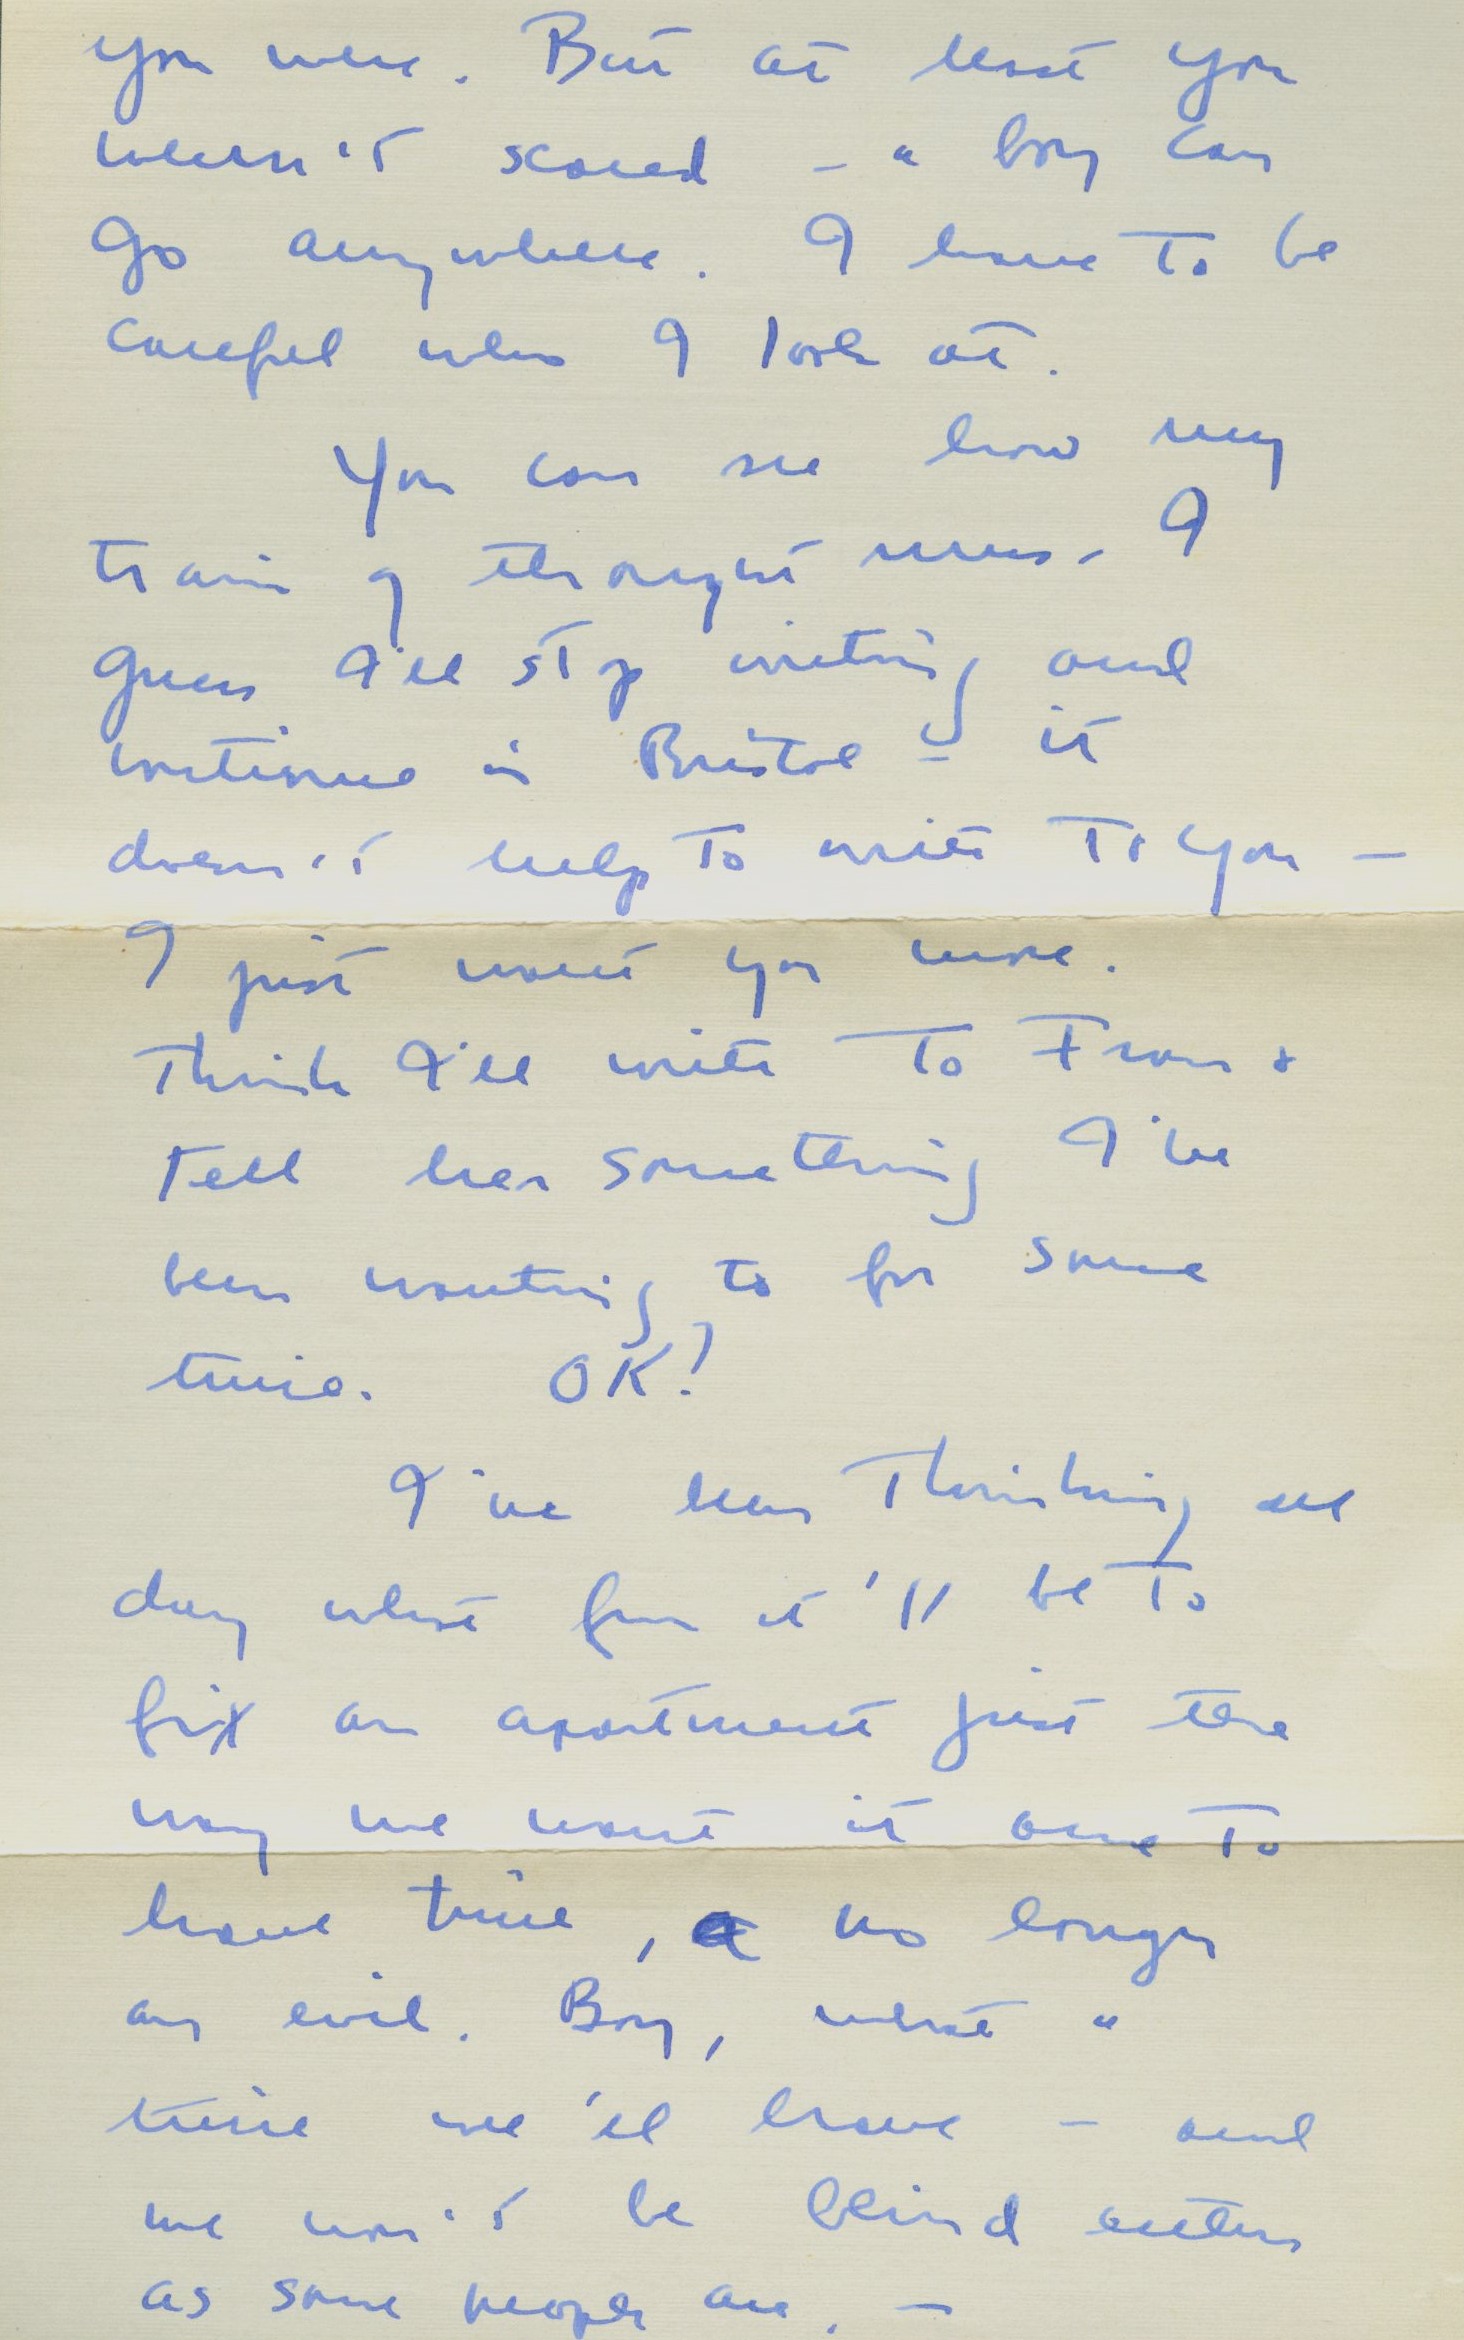 you were. But at least you
weren't scared - a boy can
go anywhere. I have to be
careful who I look at.
You can see how my
train of thought runs. I
guess I'll stop writing and
continue in Bristol - it
doesn't help to write to you -
I just want you more.
Think I'll write to Fran &
tell her something I've
been wanting to for some
time. OK?
I've been thinking all
day what fun it'll be to
fix an apartment just the
way we want it and to
have time, a no longer
an evil. Boy, what a
time we'll have - and
we won't be blind either
as some people are. -